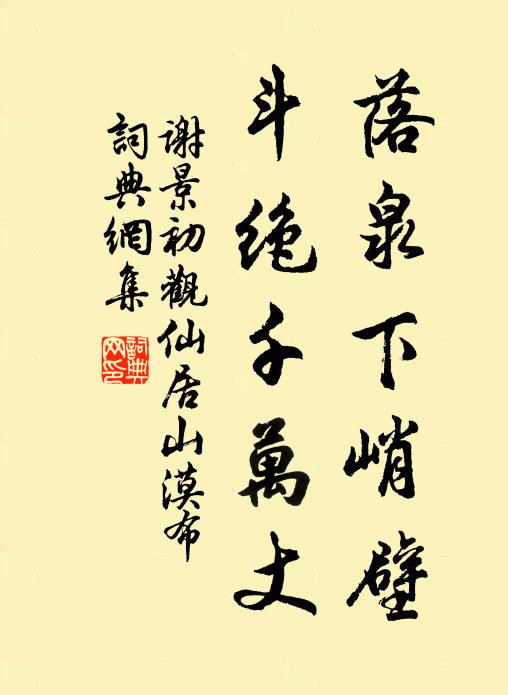 落泉下峭壁
斗絶千萬丈
谢景初觀仙居山漠布
詞典網集
詞典网印